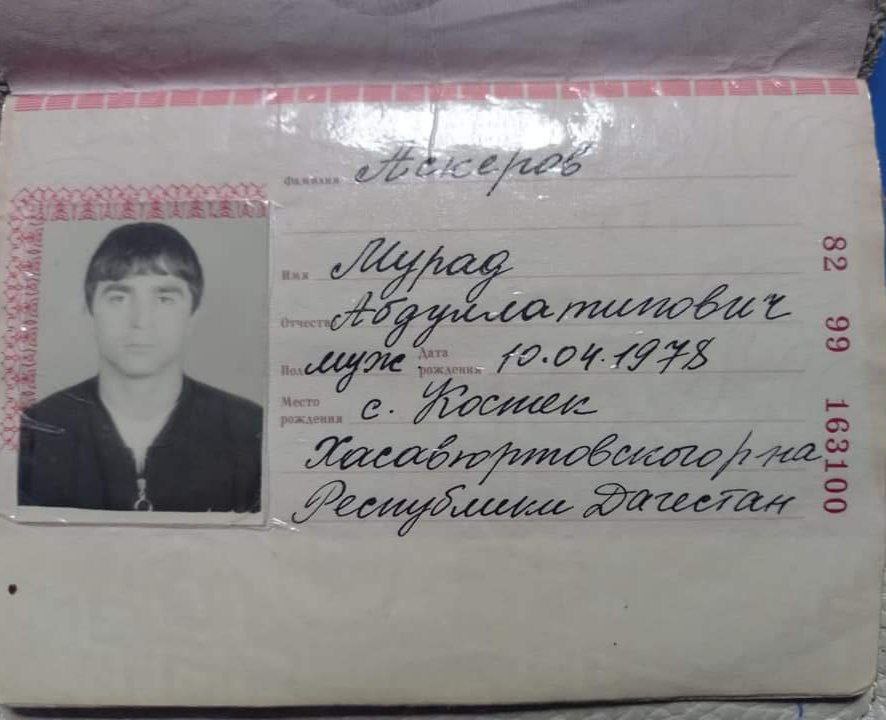 Фамилия Аскеров
Имя Мурад
Отчество Абдуллатипович
Пол муж. Дата рождения 10.04.1978
Место рождения с. Костек
Хасавюртовского р-на
Республики Дагестан
82 99 163100